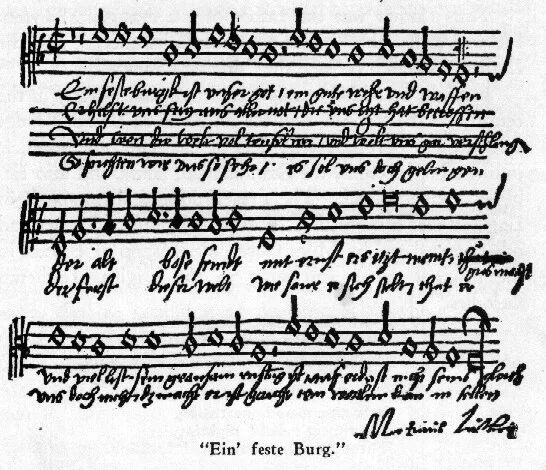 Ein feste burg ist unser got / ein gute wehr und waffen
Er hilfft uns frey aus aller not / die uns itzt hat betroffen
Und wenn die welt vol teuffel wer / und wolt uns gar verschlingen
So furchten wir uns so sehr / es sol uns doch gelingen
Der alt bose feindt mit ernst ers itzt meint gros macht
der furst dieser welt wie saur er sich stelt thut er
und viel list sein grausam rustung ist auf erd ist nicht seins gleich
uns doch nicht macht er ist gericht ein wortlin kan in fellen
Martinus Luther
"Ein' feste Burg."